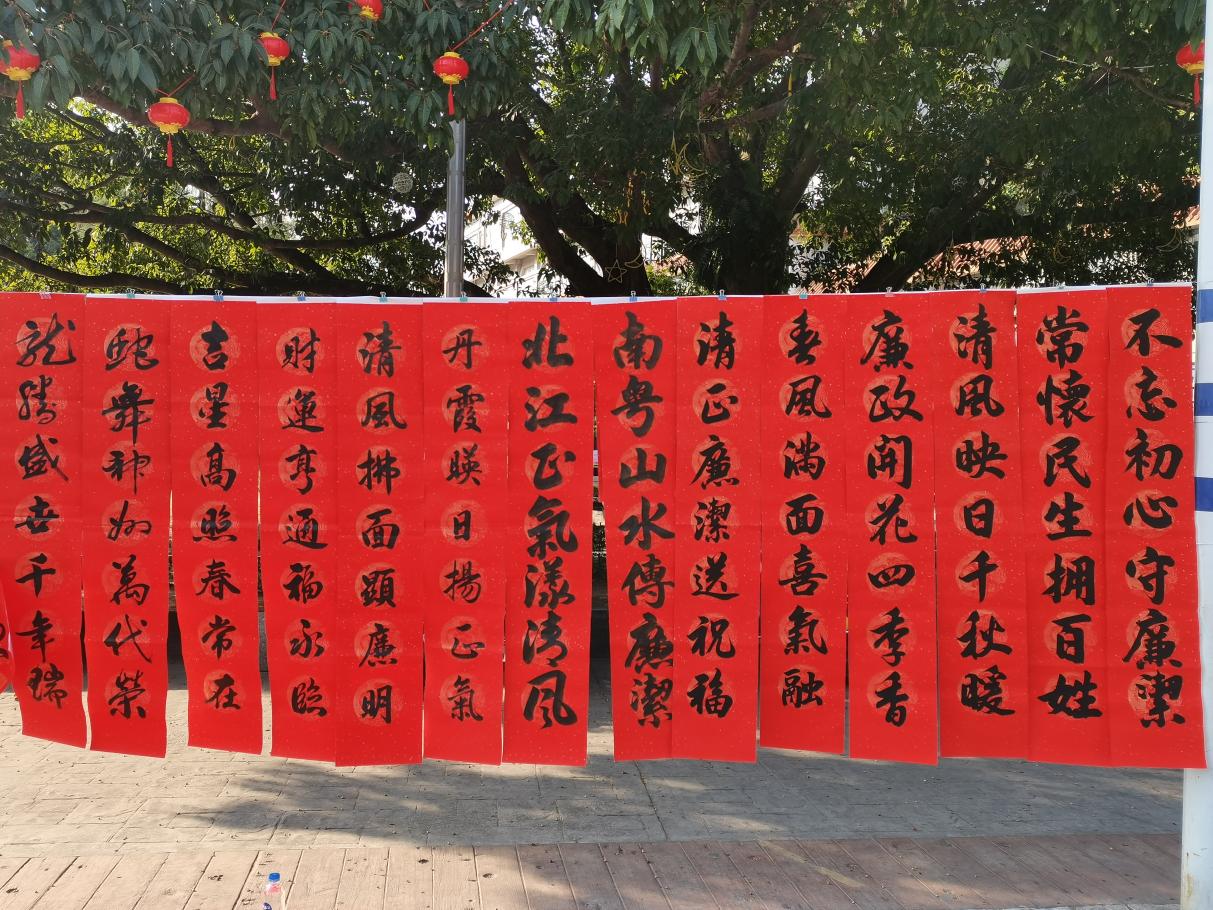 不忘初心守廉潔
常懷民生拥百姓
清風映日千秋暖
廉政開花四季香
春風满面喜氣融
清正廉潔送祝福
南粤山水傳廉潔
北江正氣漾清风
丹霞暎日揚正氣
清風拂面顯廉明
財運亨通福永臨
吉星高照春常在
蛇舞神州萬代榮
龙腾盛世千年瑞